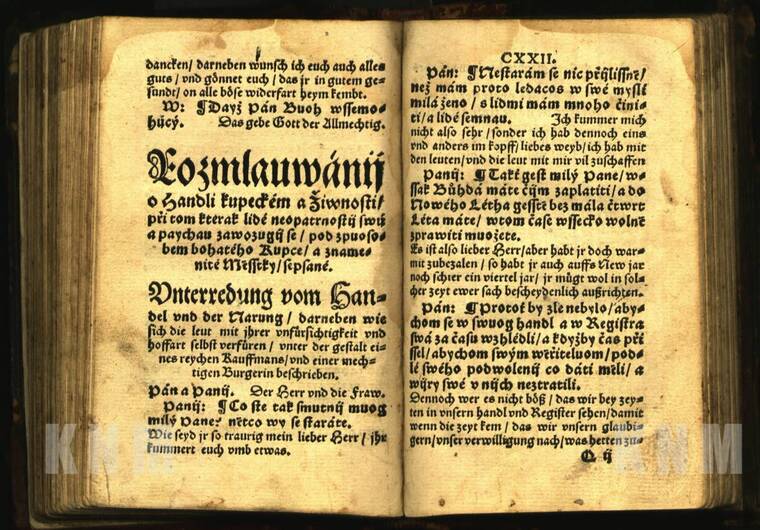 dancken/ darneben wünsch ich euch auch alles
guts/ vnd gönnet euch/ das jr in gutem ge-
sundt/ on alle böse widerfart heym kembt.
W: ¶ Dayž Pán Buoh wssemo-
hücý. Das gebe Gott der Allmechtig.
Rozmlauwánij
o Handli kupeckém a Žiwnosti/
při tom kterak lidé neopatrnostij swú
a paychau zawozugij se/ pod zpuoso-
bem bohatého Kupce/ a zname-
nitéMěsstky/ sepsané.
Vnterredung vom Han-
del vnd der Narung/ darneben wie
sich die leut mit jhrer vnfürsichtigkeit vnd
hoffart selbst verfüren/ vnter der gestalt ei-
nes reychen Kauffmans/ vnd einer mech-
tigen Burgerin beschrieben.
Pán a Panij. Der Herr vnd die Fraw.
Panij: ¶ Co ste tak smutnij muog
milý Pane? nětco wy se staráte.
Wie seyd jr so traurig mein lieber Herr/ jhr
kummert euch vmb etwas.
CXXII.
Pán: ¶ Nestarám se nic přijlissně/
než mám proto ledacos w swé mysli
milá ženo/ s lidmi mám mnoho čini-
ti/ a lidé semnau. Ich kummer mich
nicht also sehr/ sonder ich hab dennoch eins
vnd anders im kopff/ liebes weyb/ ich hab mit
den leuten/ vnd die leut mit mir vil zuschaffen
Panij: ¶ Takť gest milý Pane/ w-
ssak Bůhdá máte čijm zaplatiti/ a do
Nowého Létha gesstě bez mála čtwrt
Léta máte/ w tom čase wssecko wolně
zprawiti muožete.
Es ist also lieber Herr/ aber habt jr doch war-
mit zubezalen/ so habt jr auch auffs New jar
noch schier ein viertel jar/ jr mügt wol in sol-
cher zeyt ewer sach bescheydenlich außrichten.
Pán: ¶ Protož by zle nebylo/ aby-
chom se w swuog handl a w Registra
swá za času wzhlédli/ a kdyžby čas při
ssel/ abychom swým wěřiteluom/ pod-
lé swého podwolenij co dáti měli/ a
wijry swé v nijch neztratili.
Dennoch wer es nicht böß/ das wir bey zey-
ten in vnsern handl vnd Register sehen/ damit
wenn die zeyt kem/ das wir vnsern glaubi-
gern/ vnser verwilligung nach/ was hetten zu-
Q ij
KNM
KNM